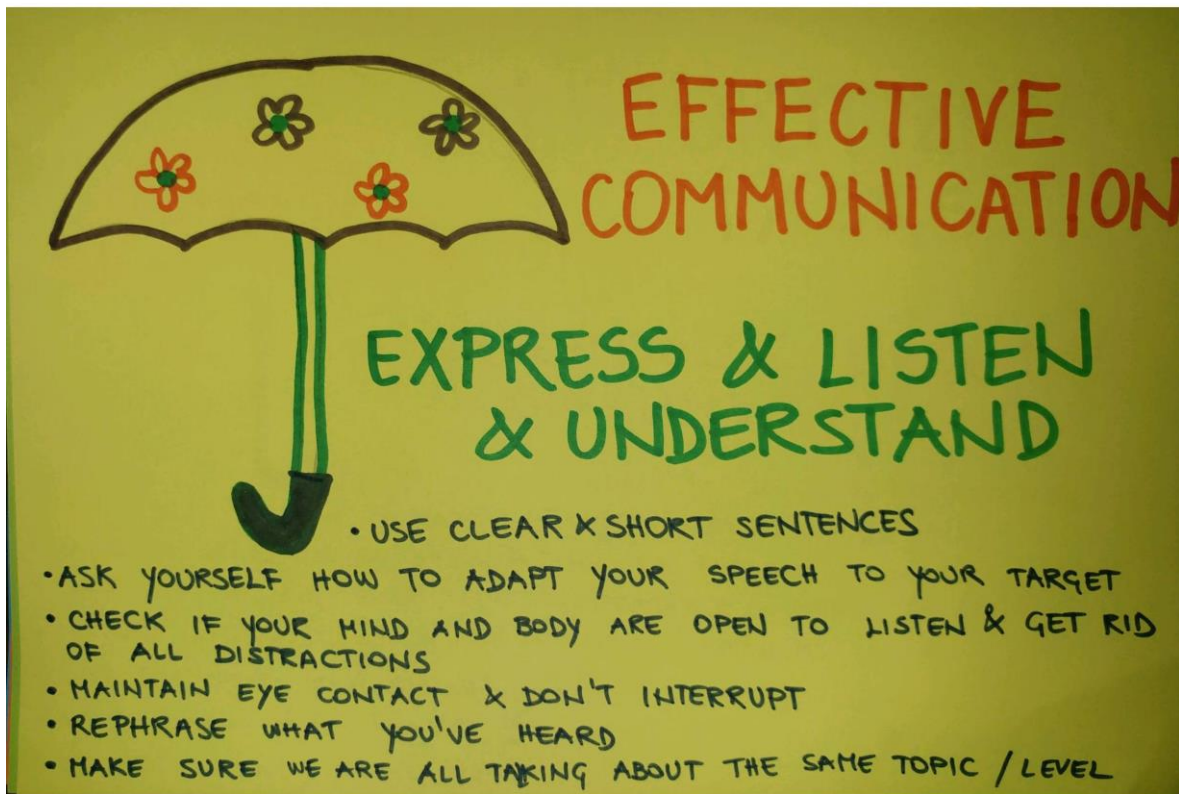 EFFECTIVE
COMMUNICATION
EXPRESS & LISTEN
& UNDERSTAND
• USE CLEAR & SHORT SENTENCES
• ASK YOURSELF HOW TO ADAPT YOUR SPEECH TO YOUR TARGET
• CHECK IF YOUR MIND AND BODY ARE OPEN TO LISTEN & GET RID
OF ALL DISTRACTIONS
• MAINTAIN EYE CONTACT & DON'T INTERRUPT
• REPHRASE WHAT YOU'VE HEARD
• MAKE SURE WE ARE ALL TALKING ABOUT THE SAME TOPIC / LEVEL